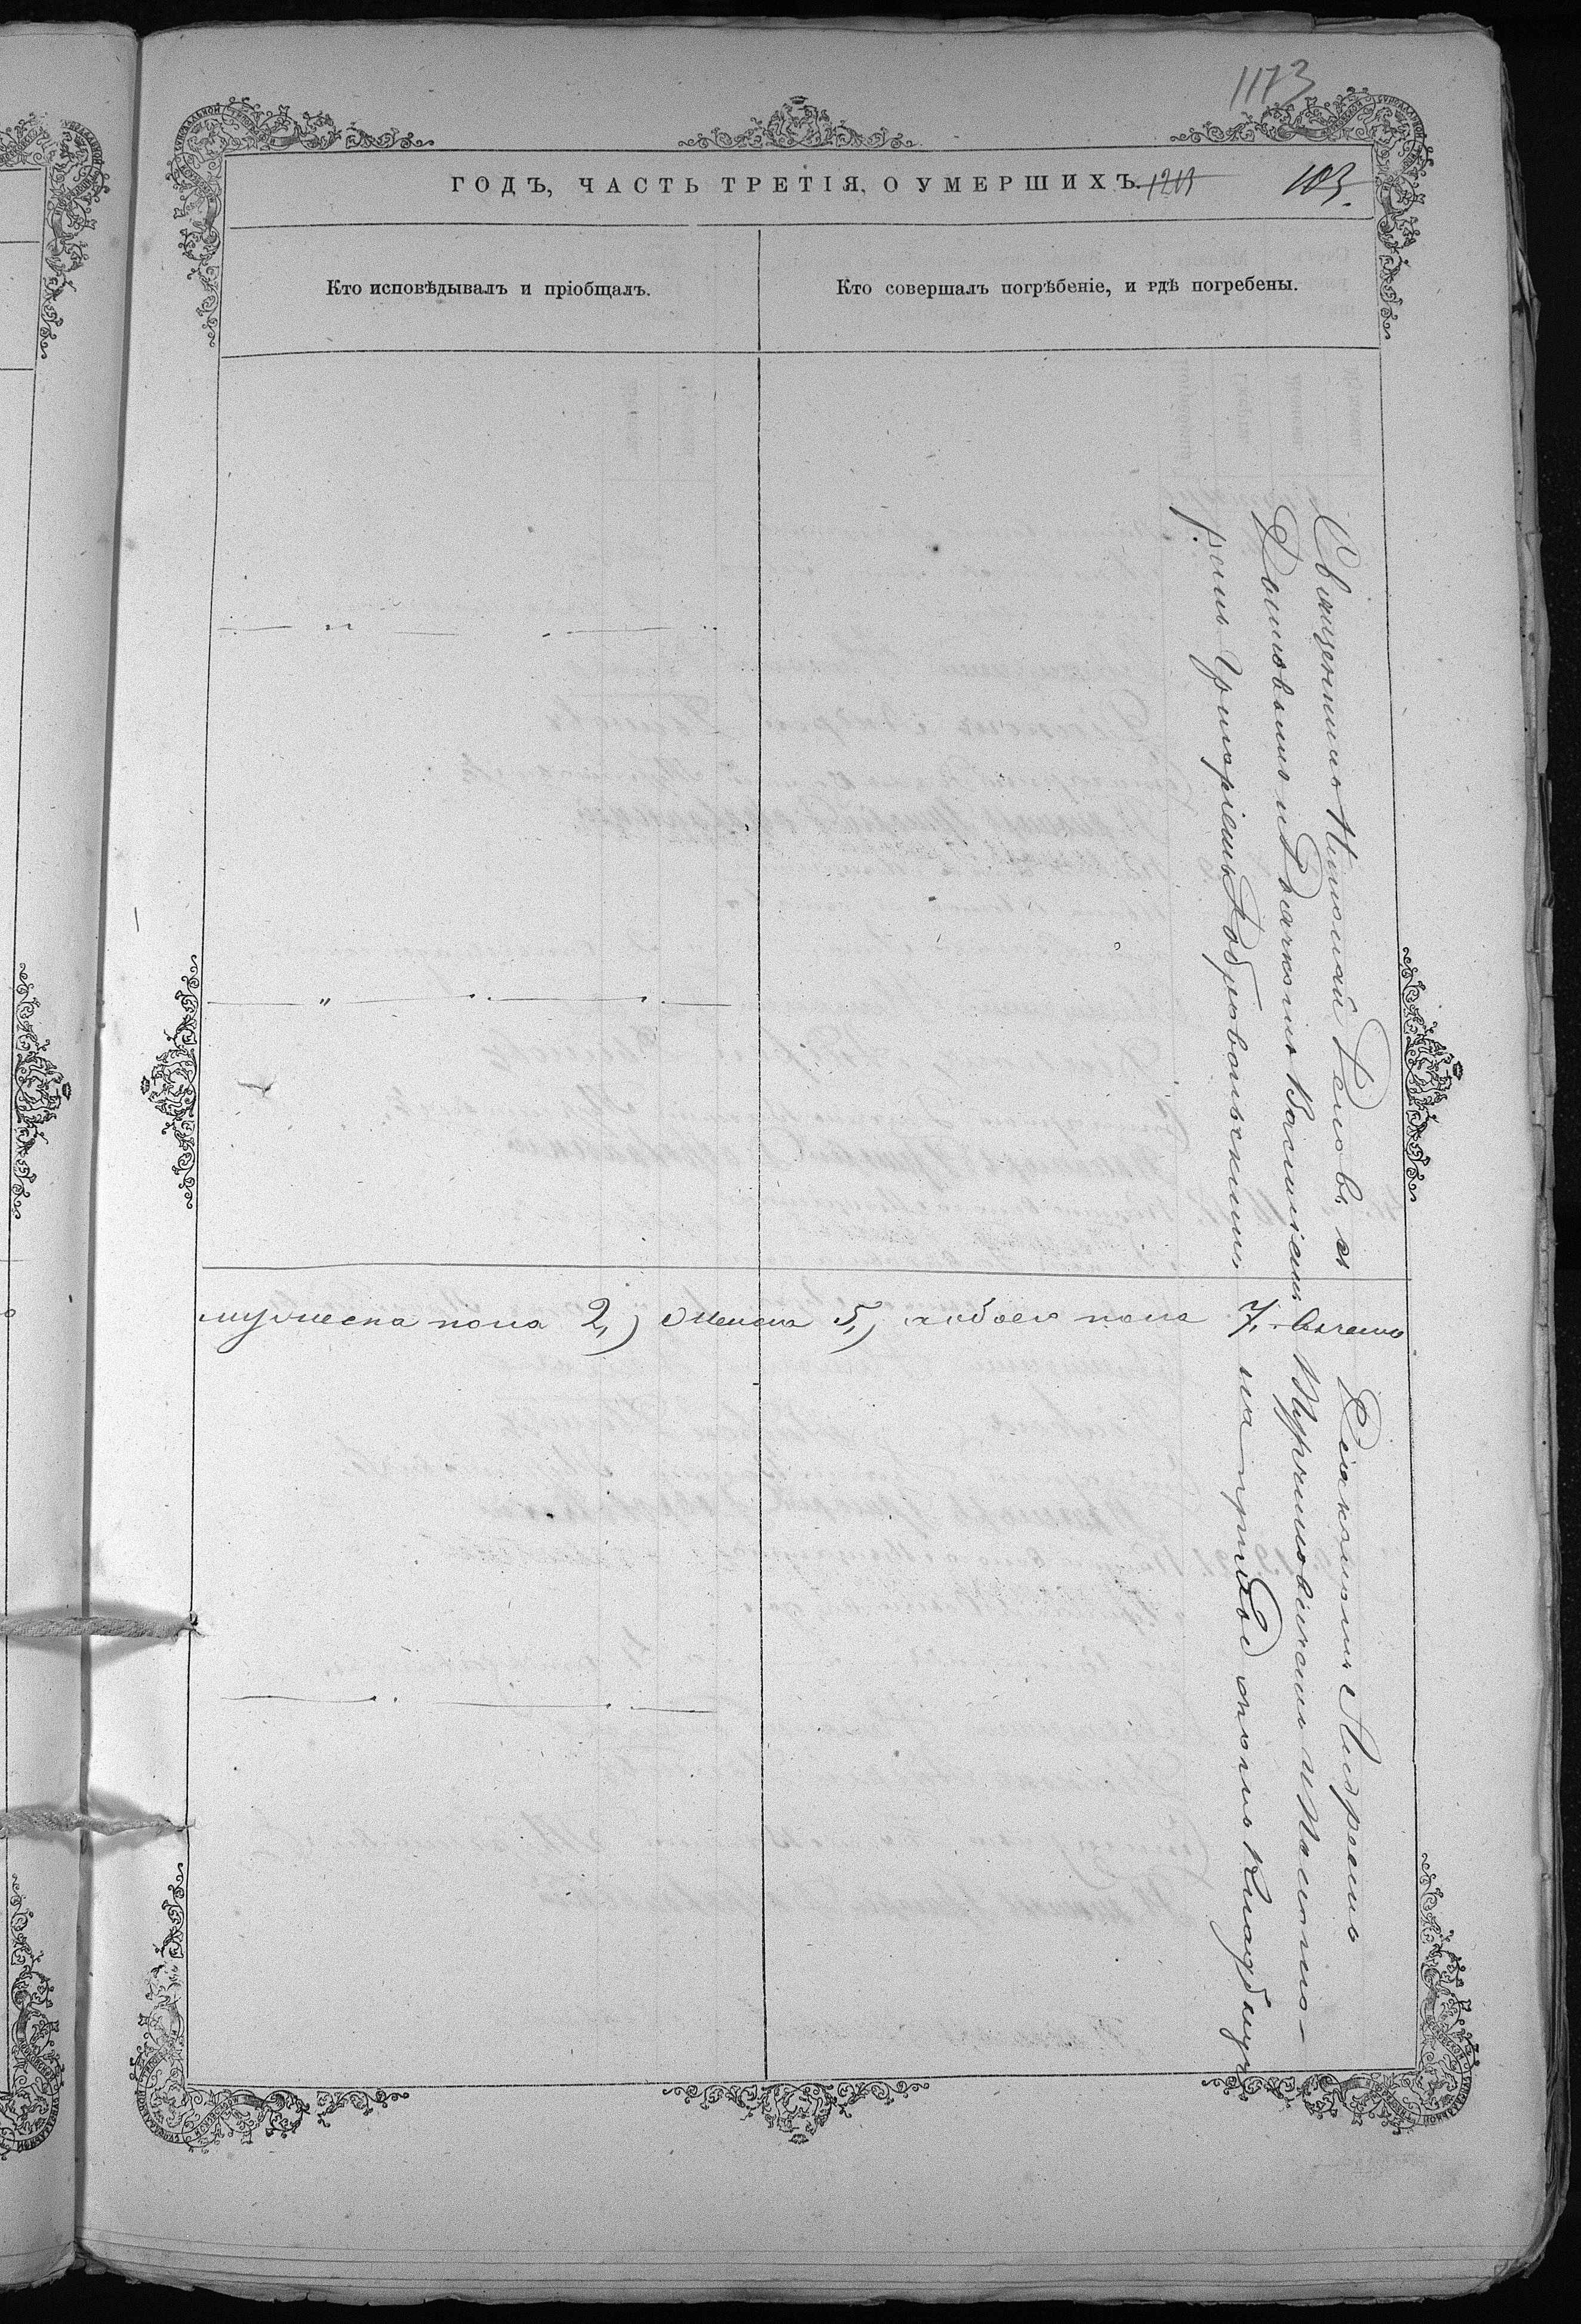 1173
ГОДЪ, ЧАСТЬ ТРЕТІЯ, О УМЕРШИХЪ.
1213
103.
Кто исповѣдывалъ и пріобщалъ.
Кто совершалъ погрѣбеніе, и гдѣ погребены.
Священникъ Николай Поповъ съ Діакономъ Андреемъ
Поповымъ и Дьячкомъ Василіемъ и Поно-
ремъ Григоріемъ Добровольскимъ на приход скомъ Кладбищѣ
мужеска пола 2, женска 5, а обоего пола 7.